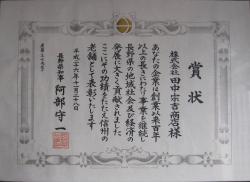 賞状
株式会社
田中宗吉商店様
あなたの企業は創業以来百年
以上の長きにわたり事業を継続し
長野県の地域社会及び経済の
発展に大きく貢献されました
ここにその功績をたたえ信州の
老舗として表彰いたします
平成二十六年十一月二十八日
長野県知事 阿部守一